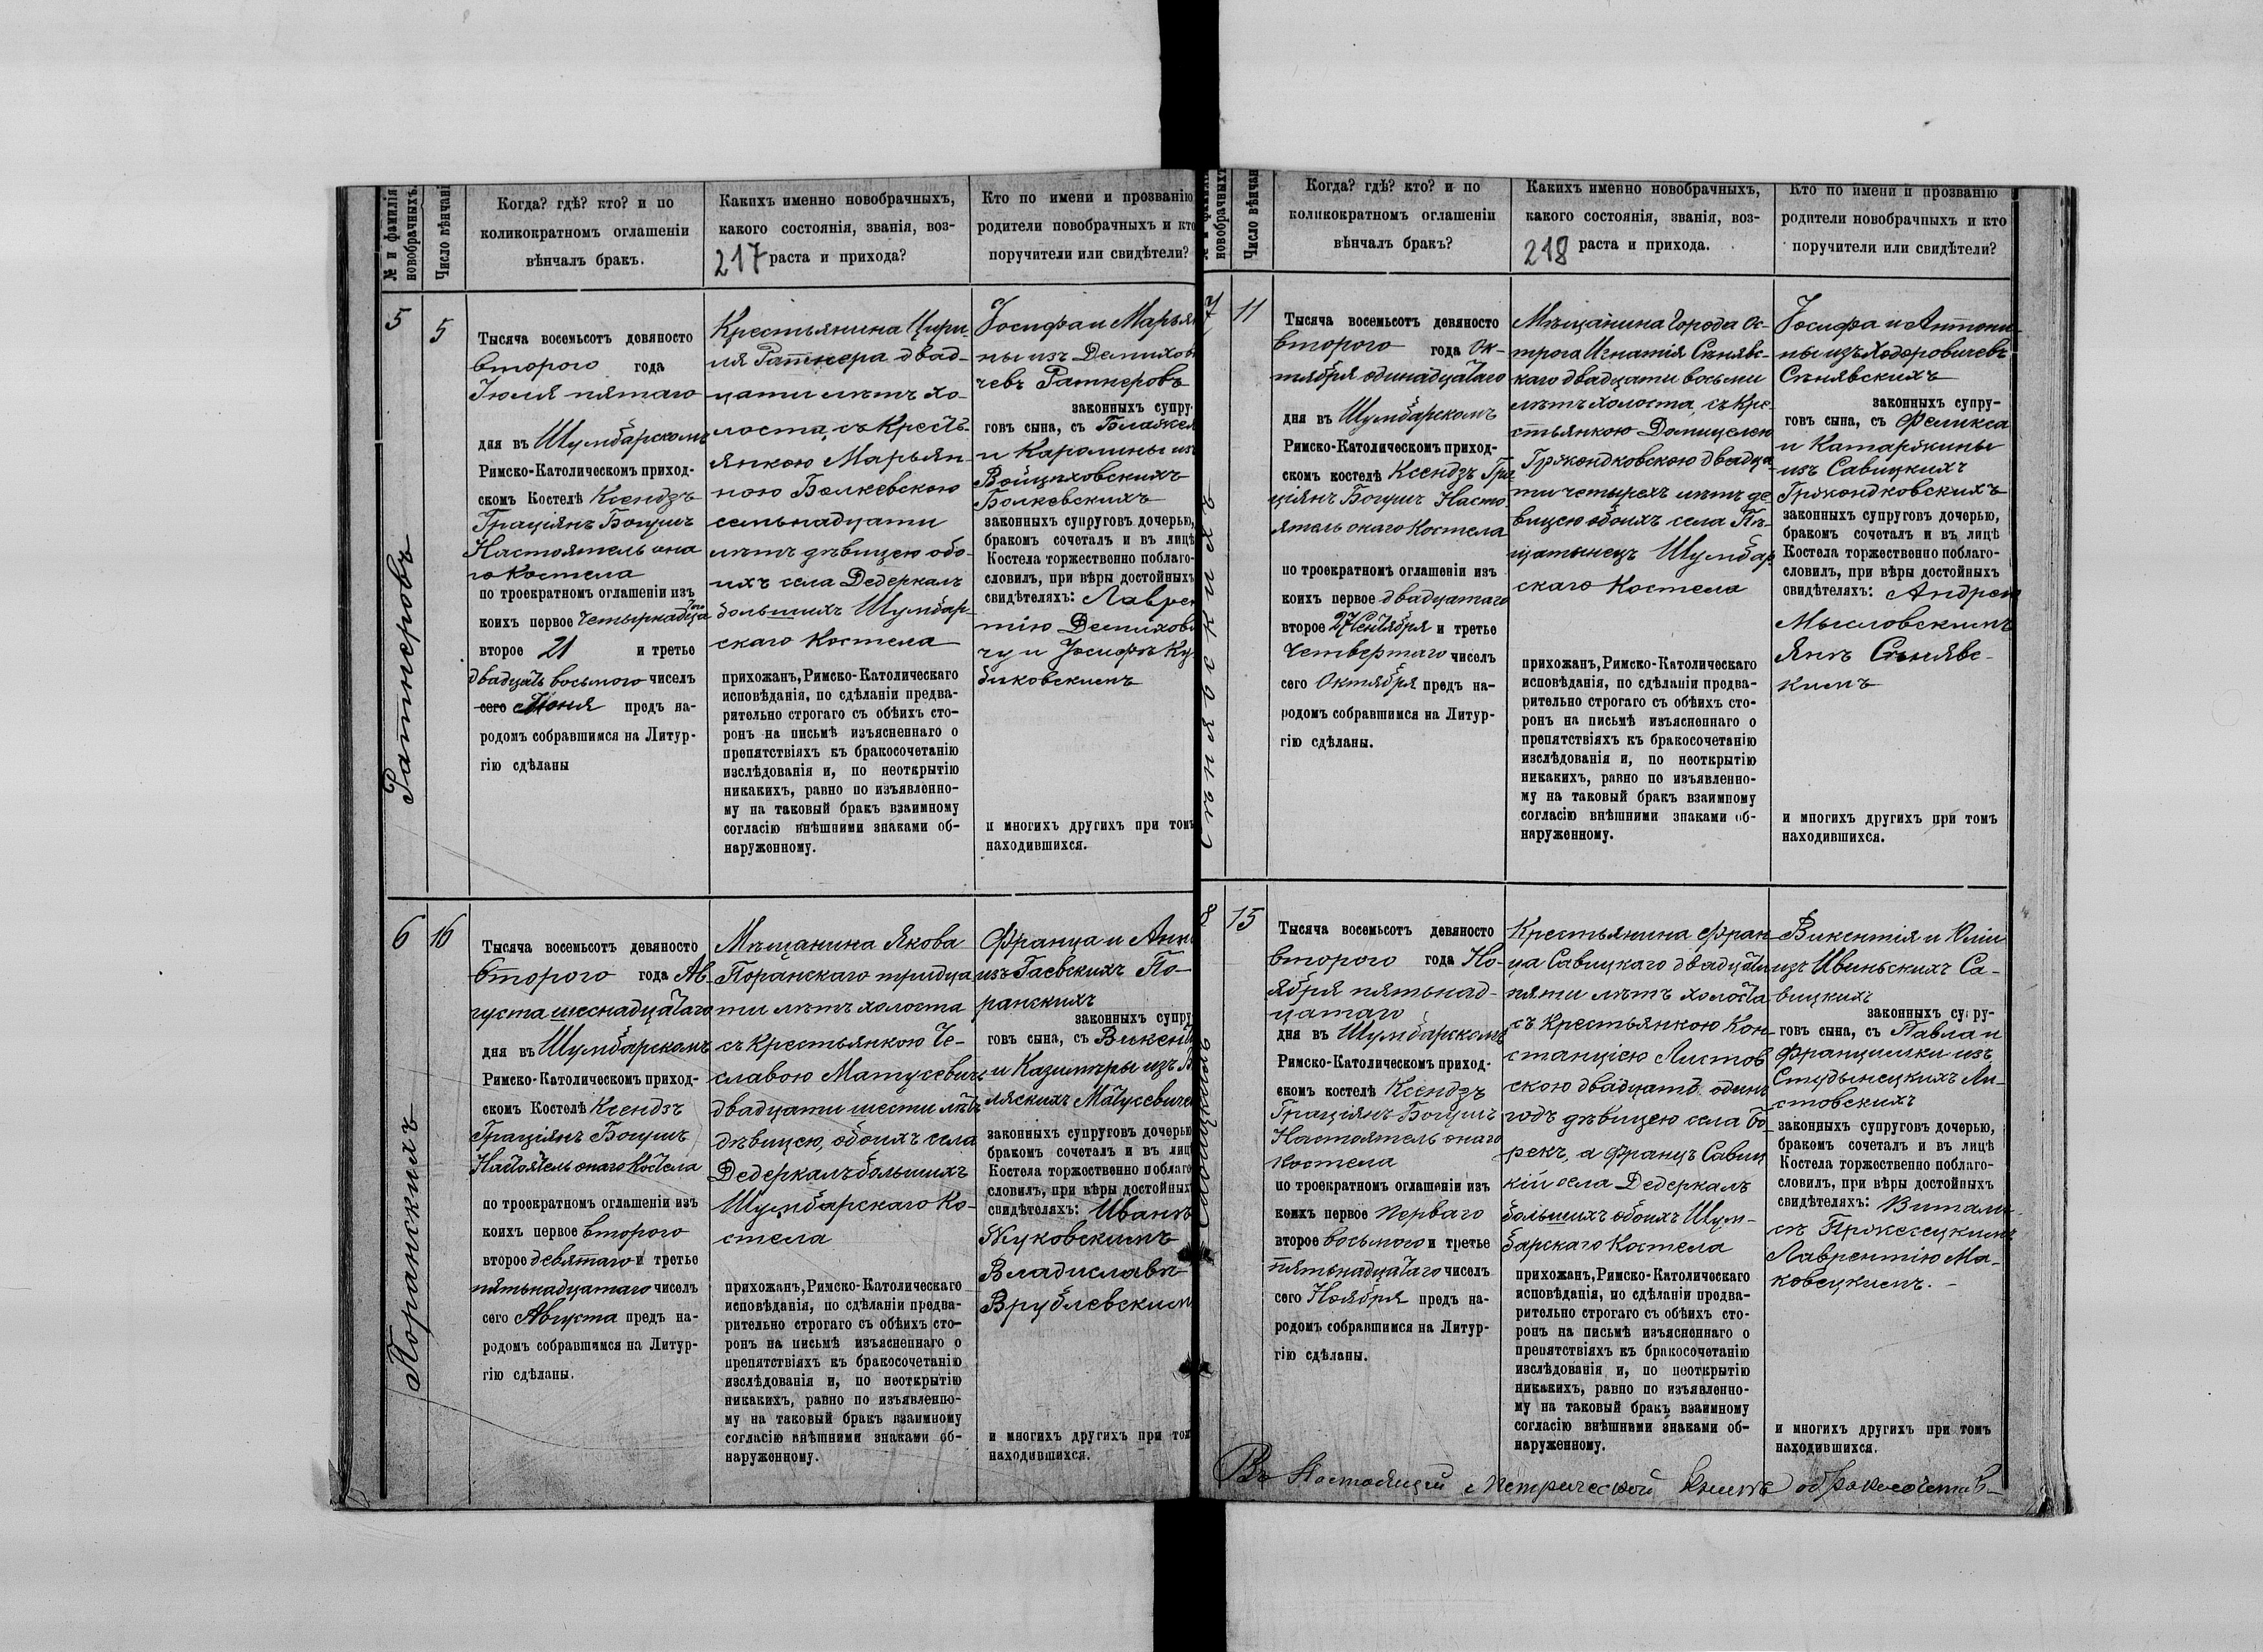 № и фамилія
новобрачныхъ.
Число вѣнчані
Когда? гдѣ? кто? и по
коликократномъ оглашеніи
вѣнчалъ бракъ.
Какихъ именно новобрачныхъ,
какого состоянія, званія, воз-
217 раста и прихода?
Кто по имени и прозванію
родители новобрачныхъ и кто
поручители или свидѣтели?
5
Ратнеровъ
5
Тысяча восемьсотъ девяносто
второго года
Іюля пятаго
дня въ Шумбарскомъ
Римско-Католическомъ приход-
скомъ Костелѣ Ксендзъ
Граціянъ Богушъ
Настоятель она
го Костела
по троекратномъ оглашеніи изъ
коихъ первое Четырнадцатого
второе 21 и третье
двадцать восьмого чиселъ
сего Июня предъ на-
родомъ собравшимся на Литур-
гію сдѣланы
Крестьянина Цири-
ля Ратнера двад-
цати лѣтъ хо-
лоста, съ Кресть-
янкою Марьян-
ною Болкевскою
семьнадцати
лѣтъ дѣвицею обо-
ихъ села Дедеркалъ
большихъ Шумбар-
скаго Костела
прихожанъ, Римско-Католическаго
исповѣданія, по сдѣланіи предва-
рительно строгаго съ обѣихъ сто-
ронъ на письмѣ изъясненнаго о
препятствіяхъ къ бракосочетанію
изслѣдованія и, по неоткрытію
никакихъ, равно по изъявленно-
му на таковый бракъ взаимному
согласію внѣшними знаками об-
наруженному.
Іосифа и Марьян
ны изъ Демихов
чевъ Ратнеровъ
законныхъ супру-
говъ сына, съ Блажея
и Каролины изъ
Войцѣховскихъ
Болкевскихъ
законныхъ супруговъ дочерью,
бракомъ сочеталъ и въ лицѣ
Костела торжественно поблаго-
словилъ, при вѣры достойныхъ
свидѣтеляхъ: Лаврен
тію Демихови
чу и Іосифѣ Ку
биковскимъ
и многихъ другихъ при томъ
находившихся.
6
Поранскихъ
16
Тысяча восемьсотъ девяносто
второго года Ав-
густа шеснадцатаго
дня въ Шумбарскомъ
Римско-Католическомъ приход-
скомъ Костелѣ Ксендзъ
Граціянъ Богушъ
Настоятель онаго Костела
по троекратномъ оглашеніи изъ
коихъ первое второго
второе девятаго и третье
пятьнадцатаго чиселъ
сего Августа предъ на-
родомъ собравшимся на Литур-
гію сдѣланы.
Мѣщанина Якова
Поранскаго тридца
ти лѣтъ холоста
съ крестьянкою Че-
славою Матусевичъ
двадцати шести лѣтъ
дѣвицею, обоихъ села
Дедеркалъ большихъ
Шумбарскаго Ко-
стела
прихожанъ, Римско-Католическаго
исповѣданія, по сдѣланіи предва-
рительно строгаго съ обѣихъ сто-
ронъ на письмѣ изъясненнаго о
препятствіяхъ къ бракосочетанію
изслѣдованія и, по неоткрытію
никакихъ, равно по изъявленно-
му на таковый бракъ взаимному
согласію внѣшними знаками об-
наруженному.
Франца и Анны
изъ Гаевскихъ По-
ранскихъ
законныхъ супру
говъ сына, съ Викентія
и Казимѣры изъ
ляскихъ Матусевичей
законныхъ супруговъ дочерью
бракомъ сочеталъ и въ лицѣ
Костела торжественно поблаго
словилъ, при вѣры достойныхъ
свидѣтеляхъ: Иванѣ
Жуковскимъ
Владиславѣ
Врублевскимъ
и многихъ другихъ при томъ
находившихся.
новобрачныхъ
Число вѣнчан
Когда? гдѣ? кто? и по
коликократномъ оглашеніи
вѣнчалъ бракъ?
Какихъ именно новобрачныхъ,
какого состоянія, званія, воз-
218 раста и прихода.
Кто по имени и прозванію
родители новобрачныхъ и кто
поручители или свидѣтели?
7
11
Тысяча восемьсотъ девяносто
второго года Ок-
тября одинадцатаго
дня въ Шумбарскомъ
Римско-Католическомъ приход-
скомъ костелѣ Ксендзъ Гра
ціянъ Богушъ Насто-
ятель онаго Костела
по троекратномъ оглашеніи изъ
коихъ первое двадцатаго
второе 27 Сентября и третье
Четвертаго чиселъ
сего Октября предъ на-
родомъ собравшимся на Литур-
гію сдѣланы.
Мѣщанина Города Ос-
трога Игнатія Сѣнявс-
каго двадцати восьми
лѣтъ холоста, съ Кре-
стьянкою Домицелею
Гржондковскою двадца
ти четырехъ лѣтъ дѣ-
вицею обоихъ села Пѣ-
щатынецъ Шумбар
скаго Костела
прихожанъ, Римско-Католическаго
исповѣданія, по сдѣланіи предва-
рительно строгаго съ обѣихъ сто-
ронъ на письмѣ изъясненнаго о
препятствіяхъ къ бракосочетанію
изслѣдованія и, по неоткрытію
никакихъ, равно по изъявленно-
му на таковый бракъ взаимному
согласію внѣшними знаками об-
наруженному.
Іосифа и Антони-
ны изъ Ходоровичевъ
Сѣнявскихъ
законныхъ супру-
говъ сына, съ Феликса
и Катаржины
изъ Савицкихъ
Гржондковскихъ
законныхъ супруговъ дочерью,
бракомъ сочеталъ и въ лицѣ
Костела торжественно поблаго-
словилъ, при вѣры достойныхъ
свидѣтеляхъ: Андреѣ
Мысловскимъ
Янѣ Сѣнявс-
кимъ
и многихъ другихъ при томъ
находившихся.
8
15
Тысяча восемьсотъ девяносто
второго года Но-
ября пятьнад-
цатаго
дня въ Шумбарскомъ
Римско-Католическомъ приход-
скомъ костелѣ Ксендзъ
Граціянъ Богушъ
Настоятель онаго
Костела
по троекратномъ оглашеніи изъ
коихъ первое Перваго
второе восьмого и третье
пятьнадцатаго чиселъ
сего Ноября предъ на-
родомъ собравшимся на Литур-
гію сдѣланы.
Крестьянина Фран-
ца Савицкаго двадцати
пяти лѣтъ холоста
съ Крестьянкою Кон-
станціею Листов
скою двадцать одинъ
годъ дѣвицею села Бо-
рекъ, а Францъ Савиц
кій села Дедеркалъ
большихъ обоихъ Шум-
барскаго Костела
прихожанъ, Римско-Католическаго
исповѣданія, по сдѣланіи предва-
рительно строгаго съ обѣихъ сто-
ронъ на письмѣ изъясненнаго о
препятствіяхъ къ бракосочетанію
изслѣдованія и, по неоткрытію
никакихъ, равно по изъявленно-
му на таковый бракъ взаимному
согласію внѣшними знаками об-
наруженному.
Викентія и Юліи
изъ Ивиньскихъ Са-
вицкихъ
законныхъ супру-
говъ сына, съ Павла и
Францишки изъ
Студынецкихъ Ли-
стовскихъ
законныхъ супруговъ дочерью,
бракомъ сочеталъ и въ лицѣ
Костела торжественно поблаго-
словилъ, при вѣры достойныхъ
свидѣтеляхъ: Витали-
Лаврентію Ма-
ковецкимъ.
и многихъ другихъ при томъ
находившихся.
Въ Настоящей Метрической Книгѣ о бракосочетав-